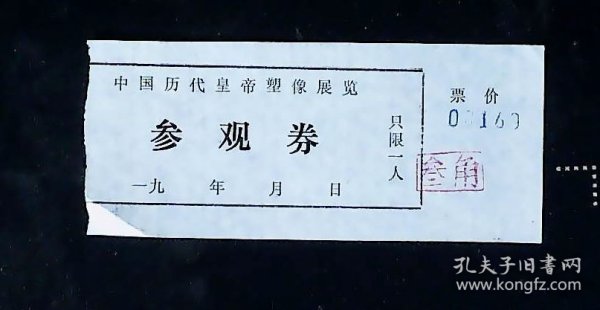 中国历代皇帝塑像展览
参观券
只限一人
一九 年 月 日
票价
叁角
孔夫子旧书网
www.kongfz.com